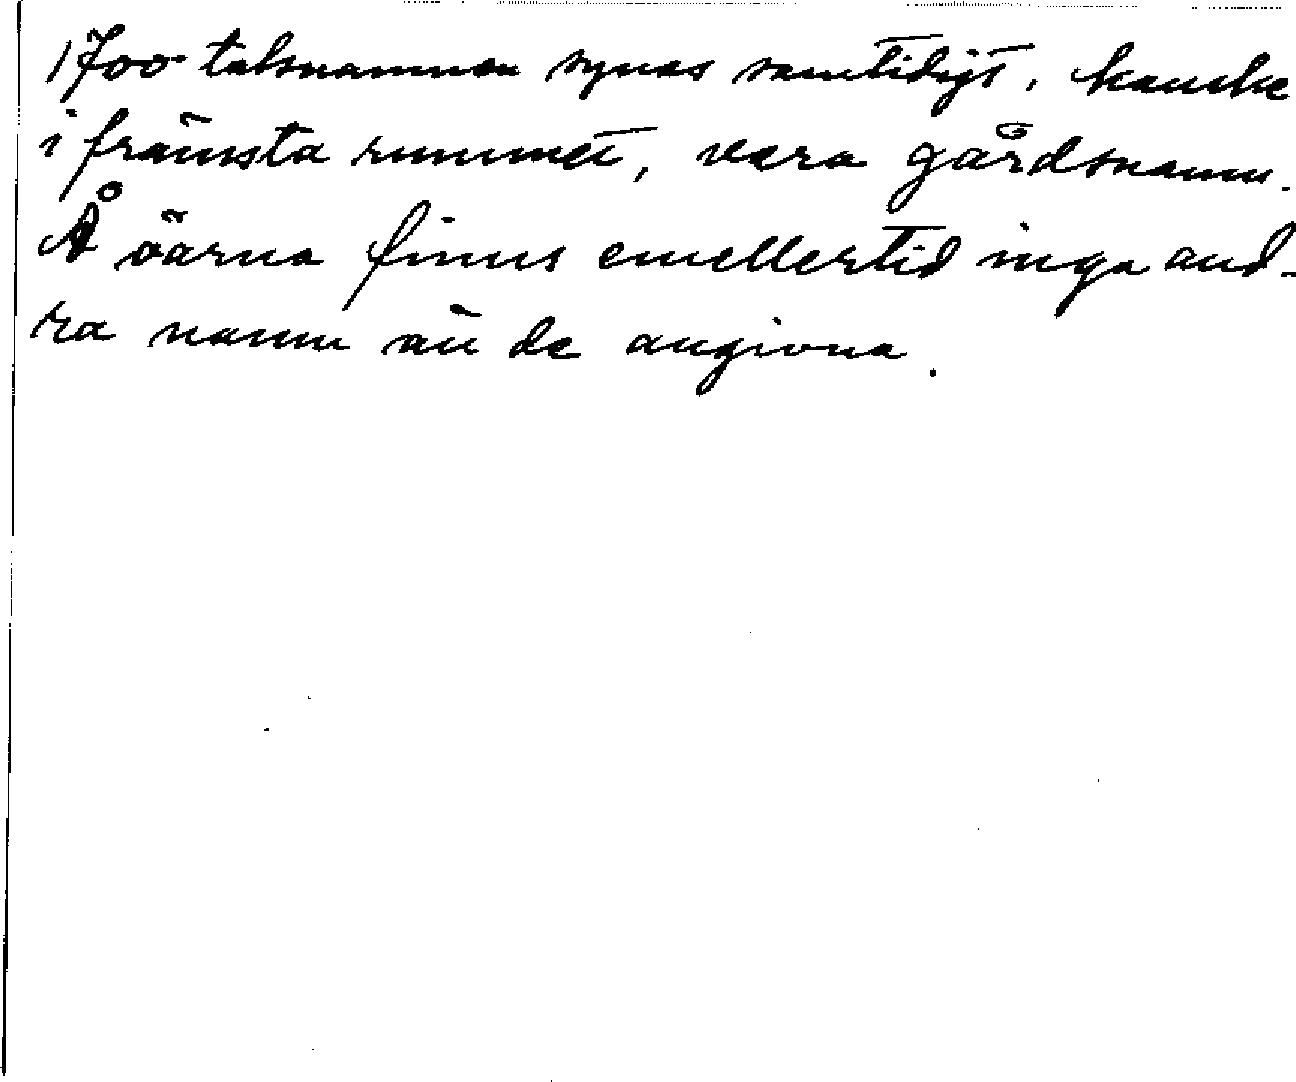 1700-talsnamnen synas samtidigt, kanske
i främsta rummet, vara gårdsnamn.
Å öarna finns emellertid inga and-
ra namn än de angivna.